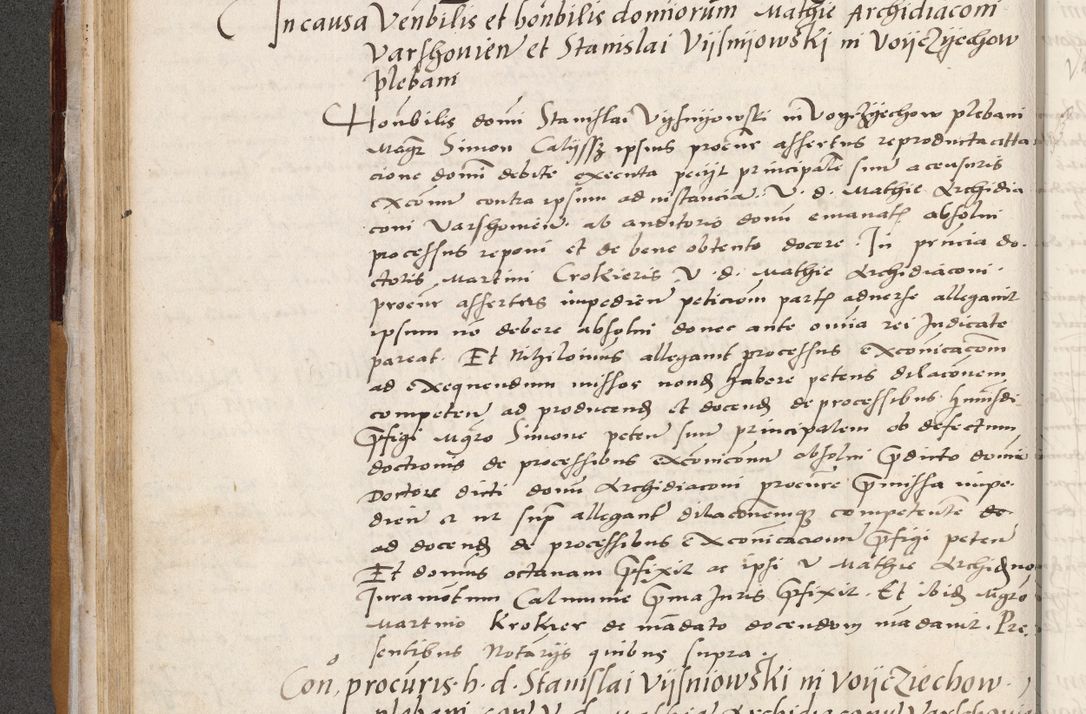 In causa Venbilis et honbilis dominorum Mathie Archidiaconi
Varshovien et Stanislai Vijsnijowski in Voijczijechow
plebani
Honbilis domi Stanislai Vijsnijowski in Voijczijechow plebani
Magr Simon Calijssz ipsius procur assertus reproducta citta
cione domi debite executa pecijt principale suu a censuris
excomu contra ipsum ad instancia V. d. Mathie Archidia
coni Varshowien. ab auditorio domi emanat absolui
processus reponi et de bene obtento docere. In pruncia do-
ctoris Martini Crokieris V. d. Mathie Archidiaconi.
procur assertus impedien peticiom part aduerse allegauit
ipsum no debere absolui donec ante omia rei Iudicate
pareat. Et Nihilomius allegauit processus exconicacom
ad exequendum missos nond habere petens dilaconem
competen ad producend et docend de processibus huiusdi
pfigi Magro Simone peten suu principalem ob defectum
doctionis de processibus exconiconu absolui pdicto domi
Doctore dicti domi Archidiaconi procure pmissa impe-
dien et ut sup allegant dilaconemq competente de
ad docend de processibus exconicaciom pfigi peten
Et domus octauam pfixit ac ipsi V Mathie Archid no
Iuramotum Calmunie pma Iuris pfixit. Et ibid Mgro
Martino Krokier de madato docendom madauit. Pre,
sentibus Notarijs quibus supra.
Con, procuris h. d. Stanislai Vijsniowski in Voijcziechow.
plebani con V. d. Mathie Archidiaconu Varschouien